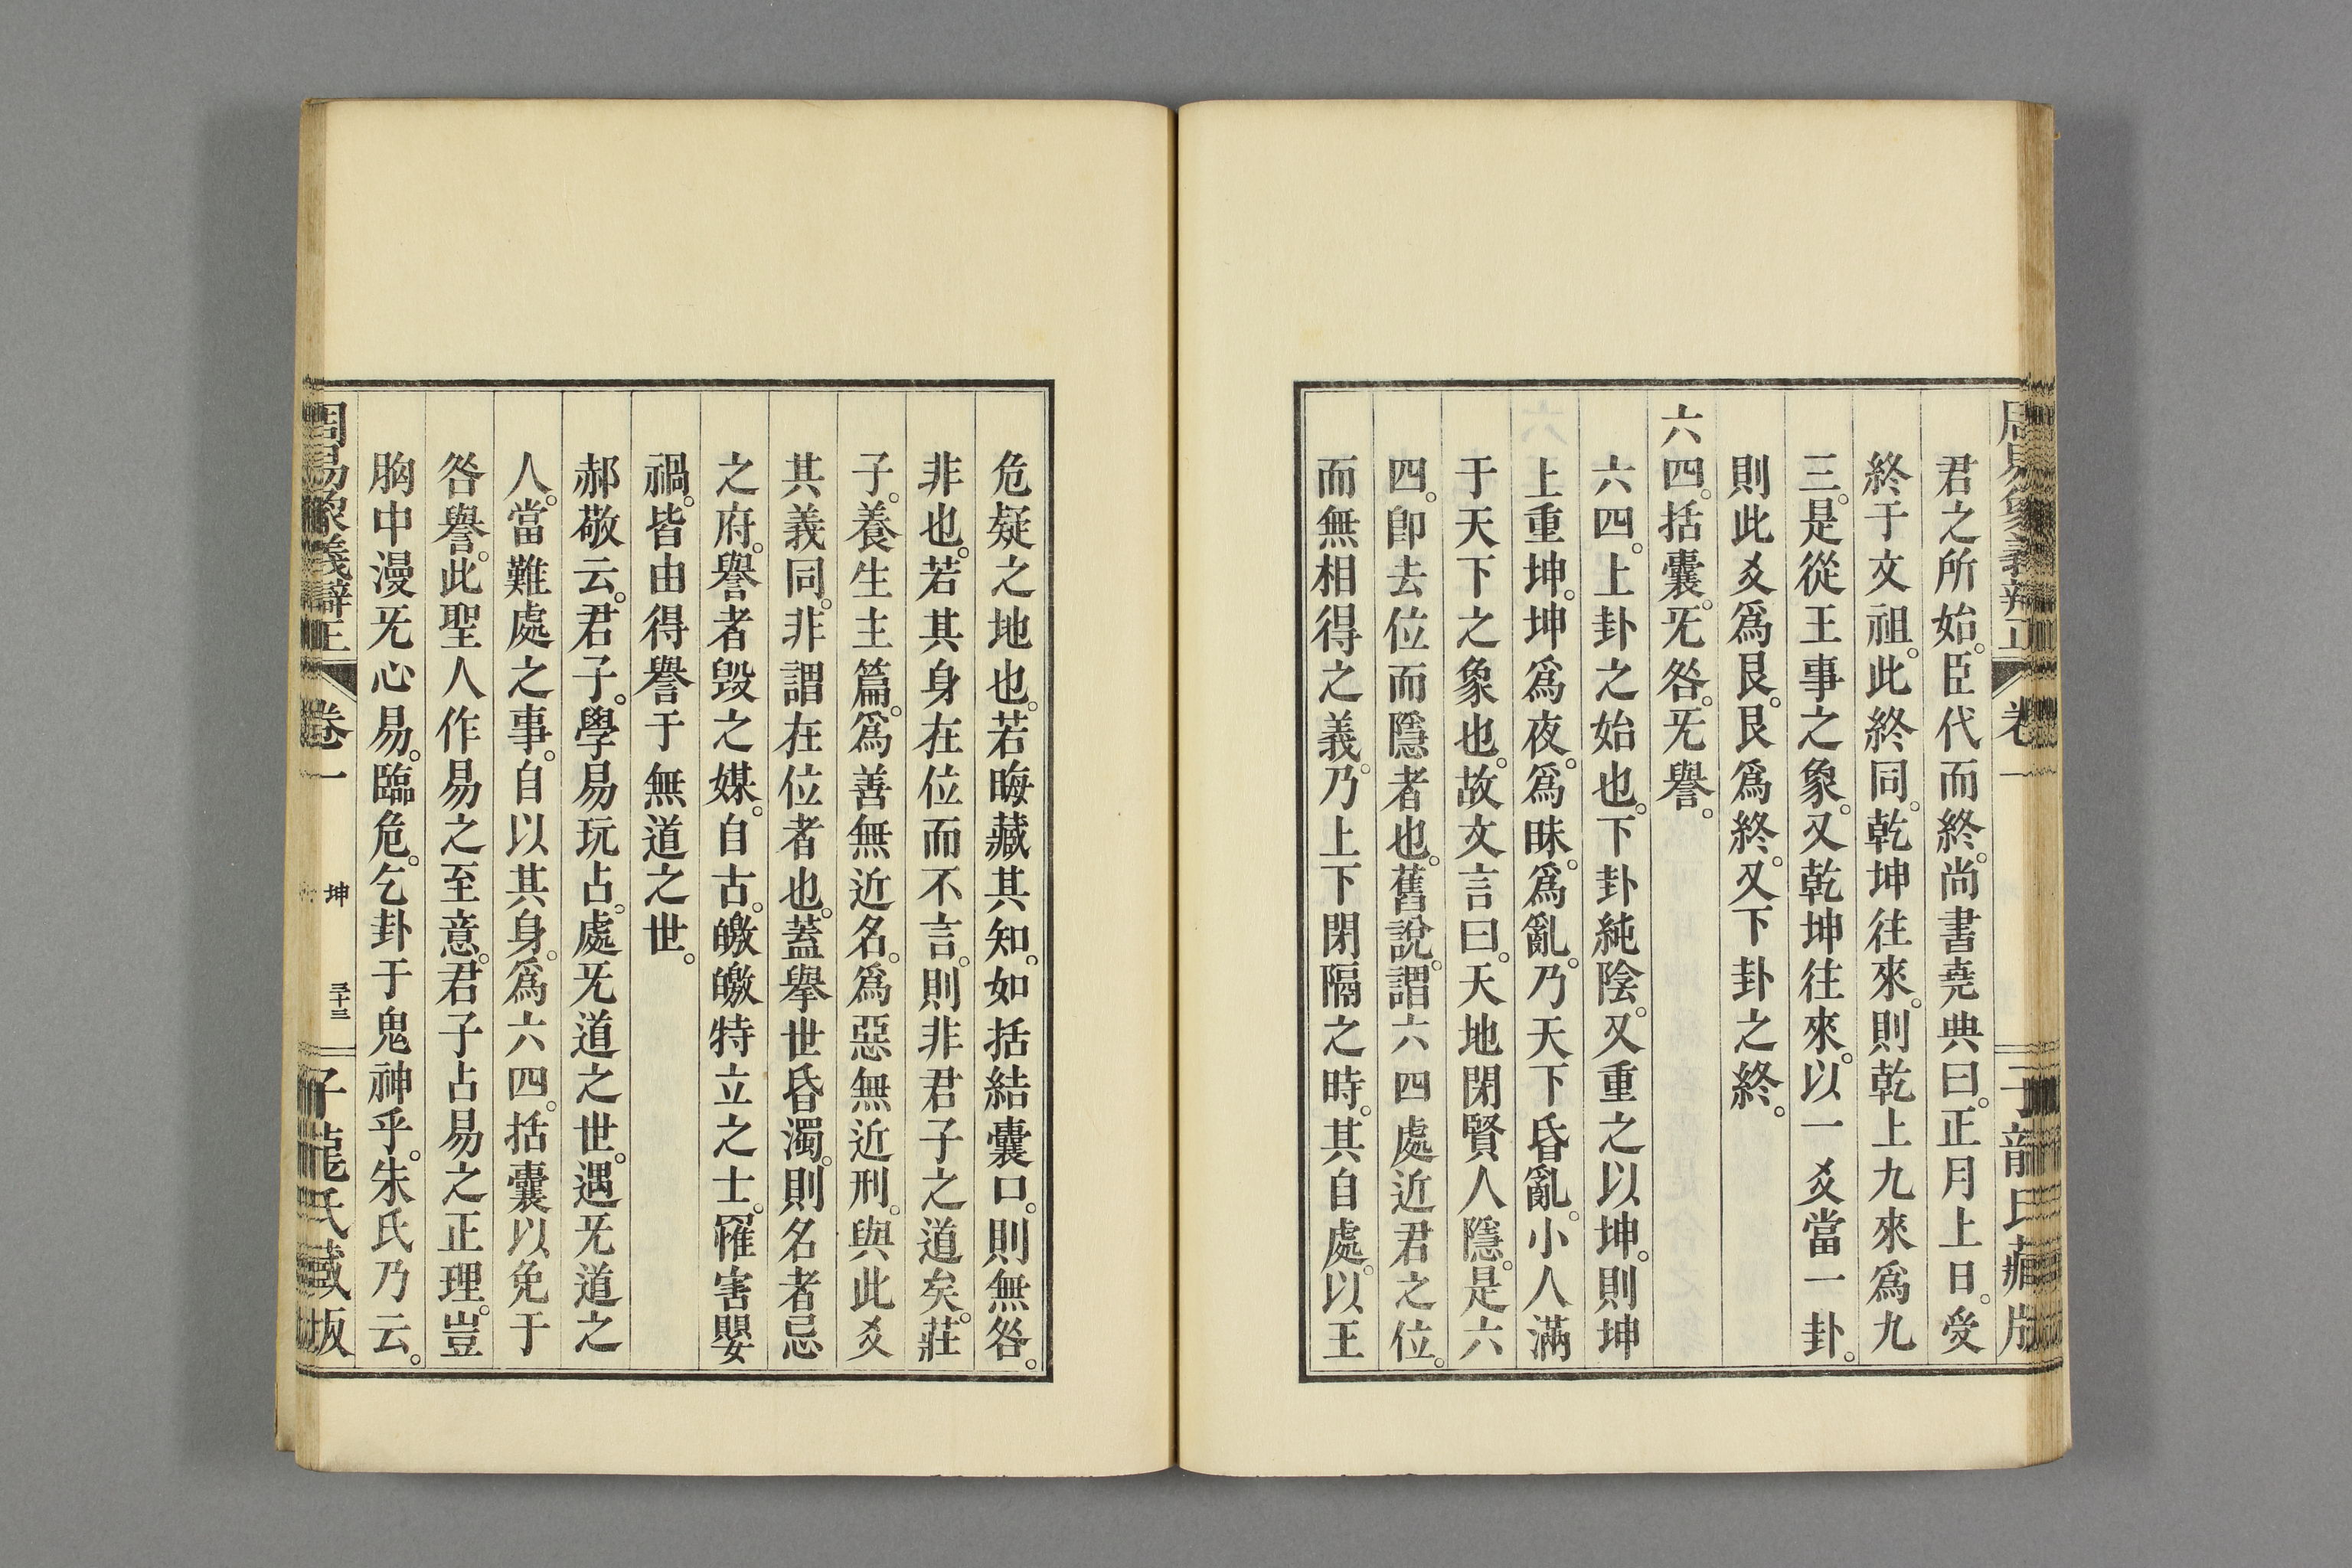 周易象義辨正 卷一 子龍氏藏版
君之所始。臣代而終。尚書堯典曰。正月上日。受
終于文祖。此終同。乾坤往來。則乾上九來爲九
三。是從王事之象。又乾坤往來。以一爻當一卦。
則此爻爲艮。艮爲終。又下卦之終。
六四。括囊。旡咎。旡譽。
六四。上卦之始也。下卦純陰。又重之以坤。則坤
上重坤。坤爲夜。爲昧。爲亂。乃天下昏亂。小人滿
于天下之象也。故文言曰。天地閉賢人隱。是六
四。卽去位而隱者也。舊說。謂六四處近君之位。
而無相得之義。乃上下閉隔之時。其自處。以王
危疑之地也。若晦藏其知。如括結囊口。則無咎。
非也。若其身在位而不言。則非君子之道矣。莊
子。養生主篇。爲善無近名。爲惡無近刑。與此爻
其義同。非謂在位者也。蓋擧世昏濁。則名者忌
之府。譽者毀之媒。自古。皦皦特立之士。罹害嬰
禍。皆由得譽于無道之世。
郝敬云。君子。學易玩占。處旡道之世。遇旡道之
人。當難處之事。自以其身。爲六四。括囊以免于
咎譽。此聖人作易之至意。君子占易之正理。豈
胸中漫旡心易。臨危。乞卦于鬼神乎。朱氏乃云。
周易象義辨正 卷一 坤 三十三 子龍氏藏版